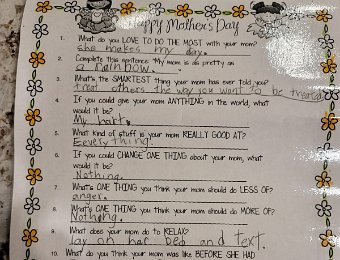 Happy Mother's Day
1. What do you LOVE TO DO THE MOST with your mom?
she makes my day.
2. Complete this sentence: "My mom is as pretty as
a rainbow.
3. What's the SMARTEST thing your mom has ever told you?
treat others the way you want to be treated
4. If you could give your mom ANYTHING in the world, what
would it be?
My hart.
5. What kind of stuff is your mom REALLY GOOD AT?
Eeverything!
6. If you could CHANGE ONE THING about your mom, what
would it be?
Nothing.
7. What's ONE THING you think your mom should do LESS OF?
anger.
8. What's ONE THING you think your mom should do MORE OF?
Nothing.
9. What does your mom do to RELAX?
lay on har bed and text.
10. What do you think your mom was like BEFORE SHE HAD